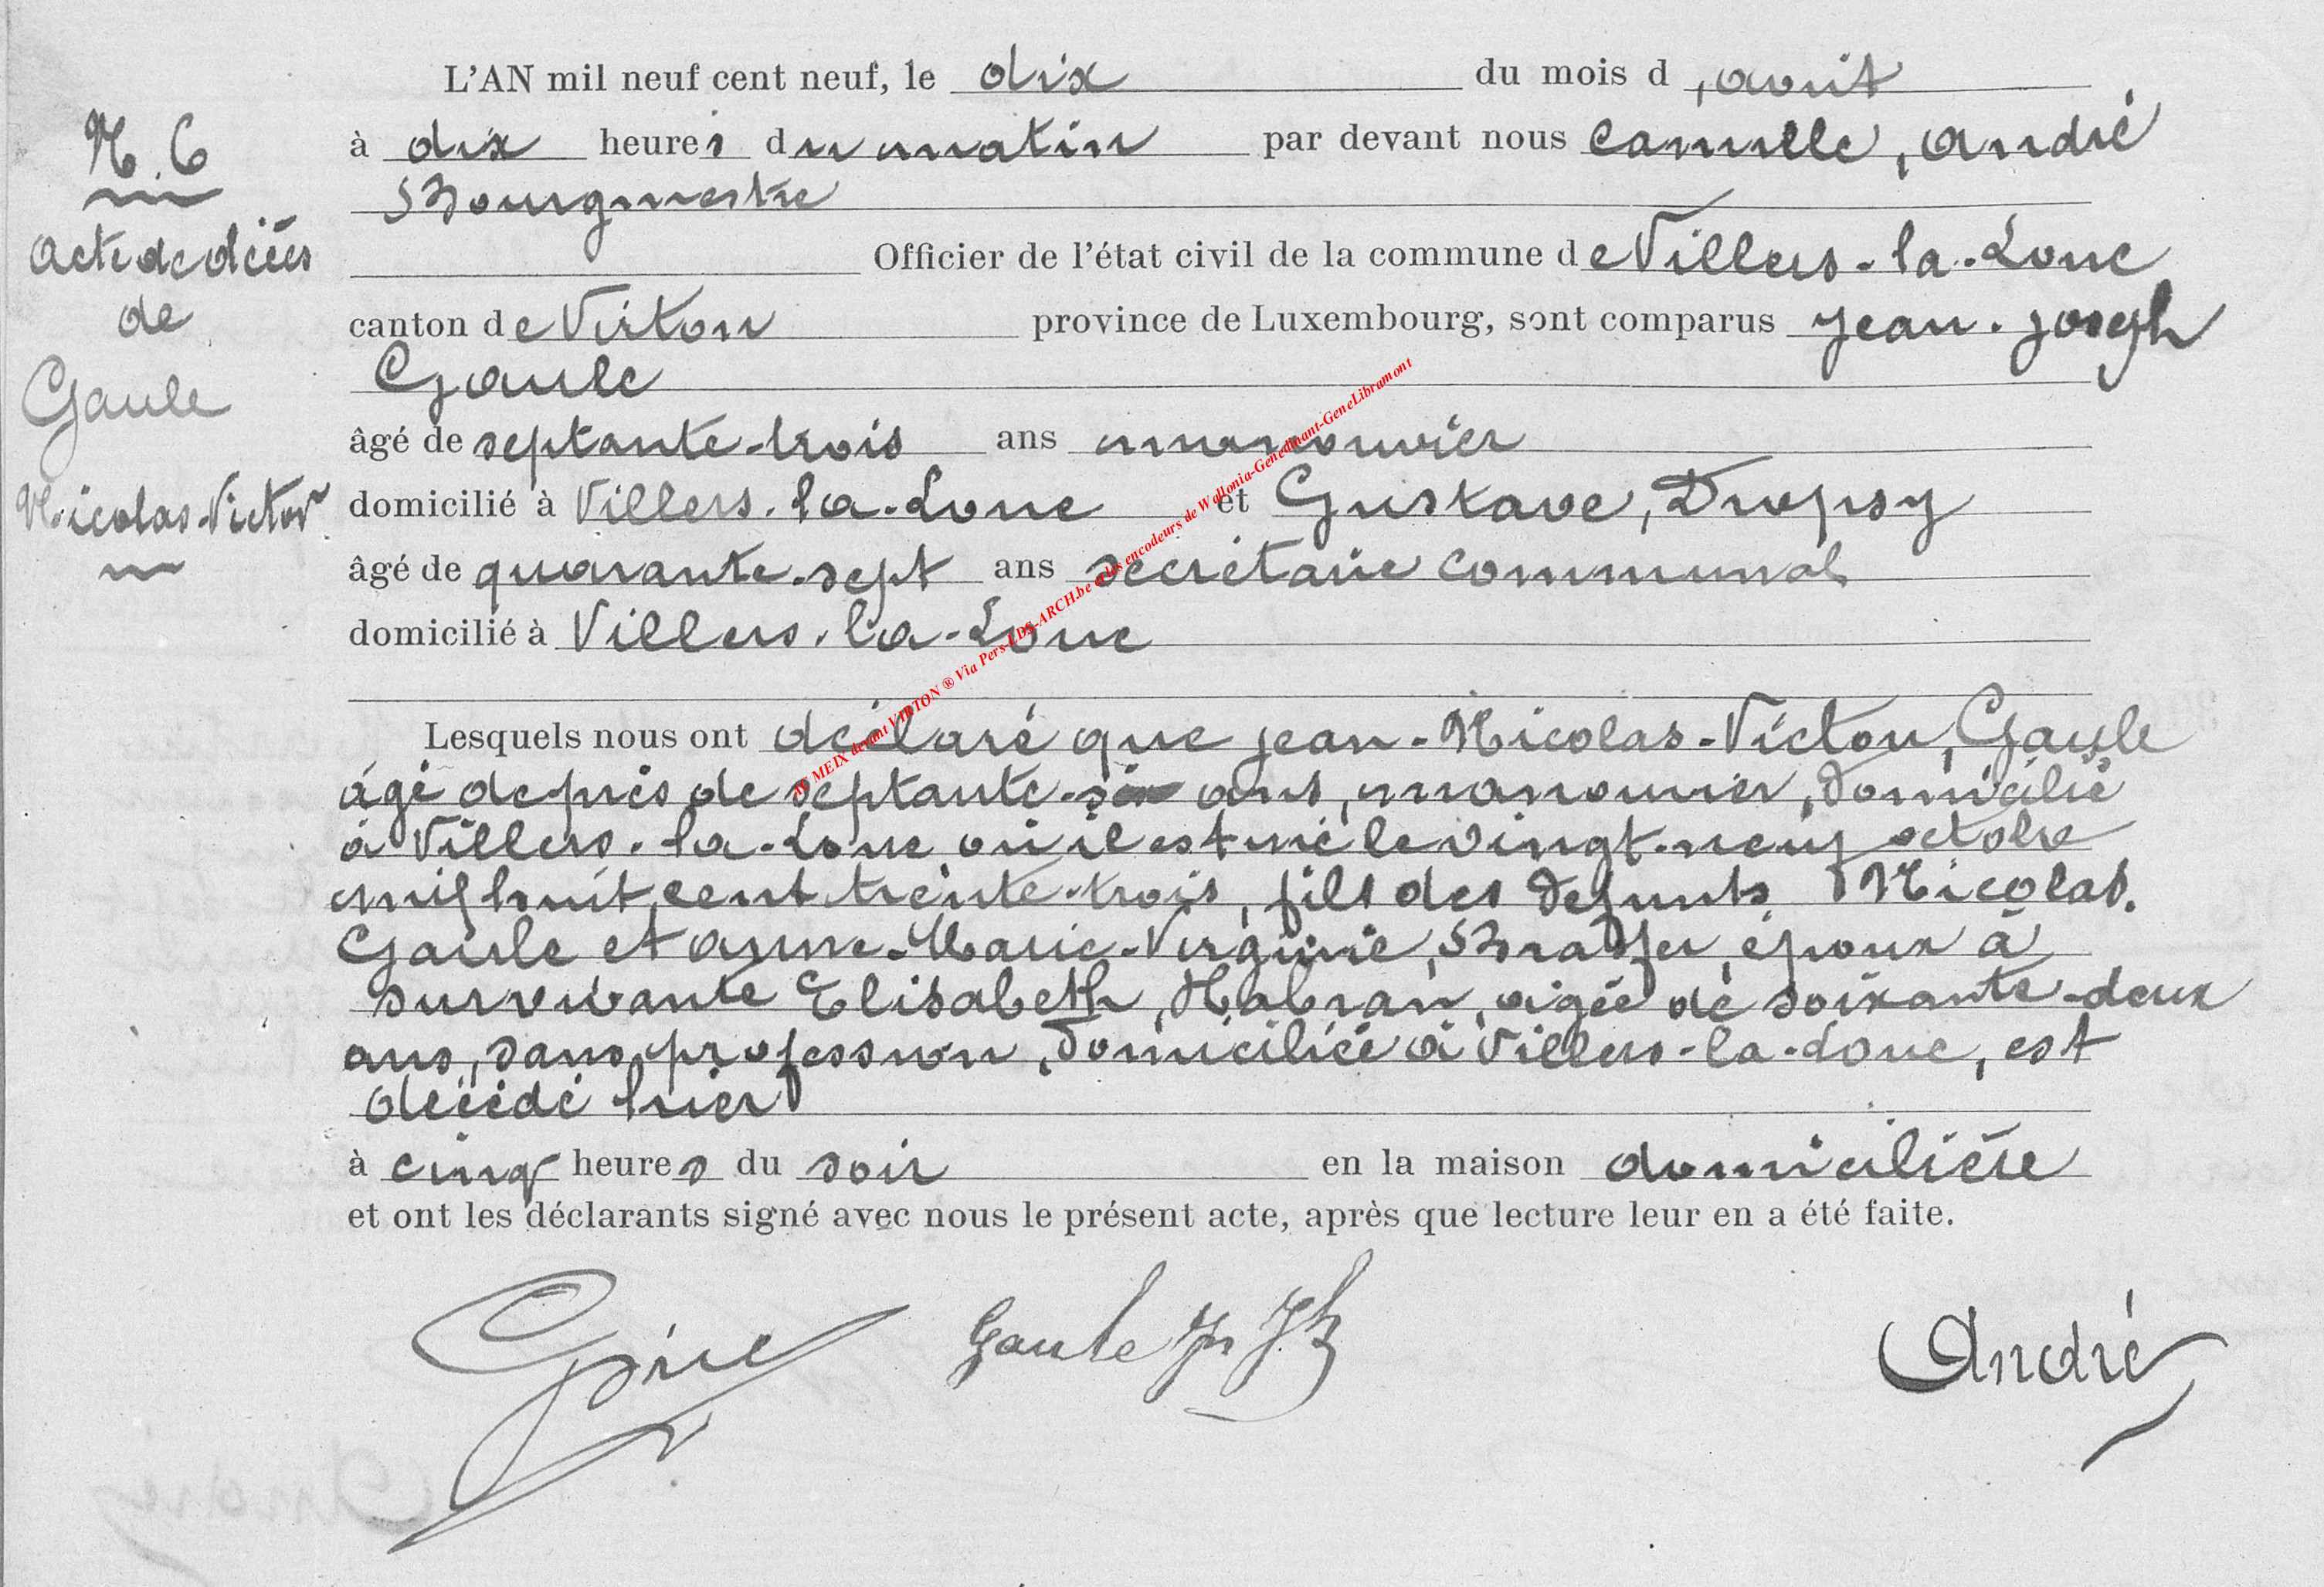 L'AN mil neuf cent neuf, le dix du mois d'août
à dix heures du matin par devant nous Camille, André
Bourgmestre
Officier de l'état civil de la commune de Villers-la-Loue
canton de Virton province de Luxembourg, sont comparus Jean-Joseph
Gaule
âgé de septante-trois ans manouvrier
domicilié à Villers-la-Loue et Gustave, Dropsy
âgé de quarante-sept ans secrétaire communal
domicilié à Villers-la-Loue
N. 6
Acte de décès
de
Gaule
Nicolas-Victor
Lesquels nous ont déclaré que Jean-Nicolas-Victor, Gaule
âgé de près de septante-six ans, manouvrier, domicilié
à Villers-la-Loue où il est né le vingt-neuf octobre
mil huit cent trente-trois, fils des défunts Nicolas,
Gaule et Anne-Marie-Virginie, époux à
survivante Elisabeth, Habran, âgée de soixante-deux
ans, sans profession, domiciliée à Villers-la-Loue, est
décédé hier
à cinq heures du soir en la maison domicilière
et ont les déclarants signé avec nous le présent acte, après que lecture leur en a été faite.
Gaule Jn Jh
André
AC MEIX devant VIRTON ® Via Pers-LDS-ARCH.be et les encodeurs de Wallonia-Genedinant-GeneLibramont